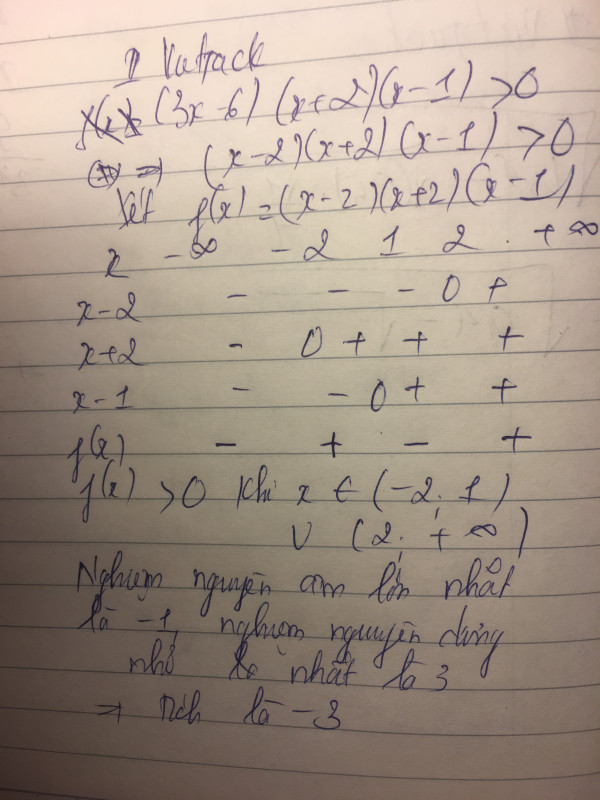 (3x-6)(x+2)(x-1) >0
⇒ (x-2)(x+2)(x-1) >0
Xét f(x) = (x-2)(x+2)(x-1)
x -∞ -2 1 2 +∞
x-2 - - - 0 +
x+2 - 0 + + +
x-1 - - 0 + +
f(x) - + - +
f(x) >0 Khi x ∈ (-2; 1)
∪ (2; +∞)
Nghiệm nguyên âm lớn nhất
là -1, nghiệm nguyên dương
nhỏ nhất là 3
⇒ Tích là -3